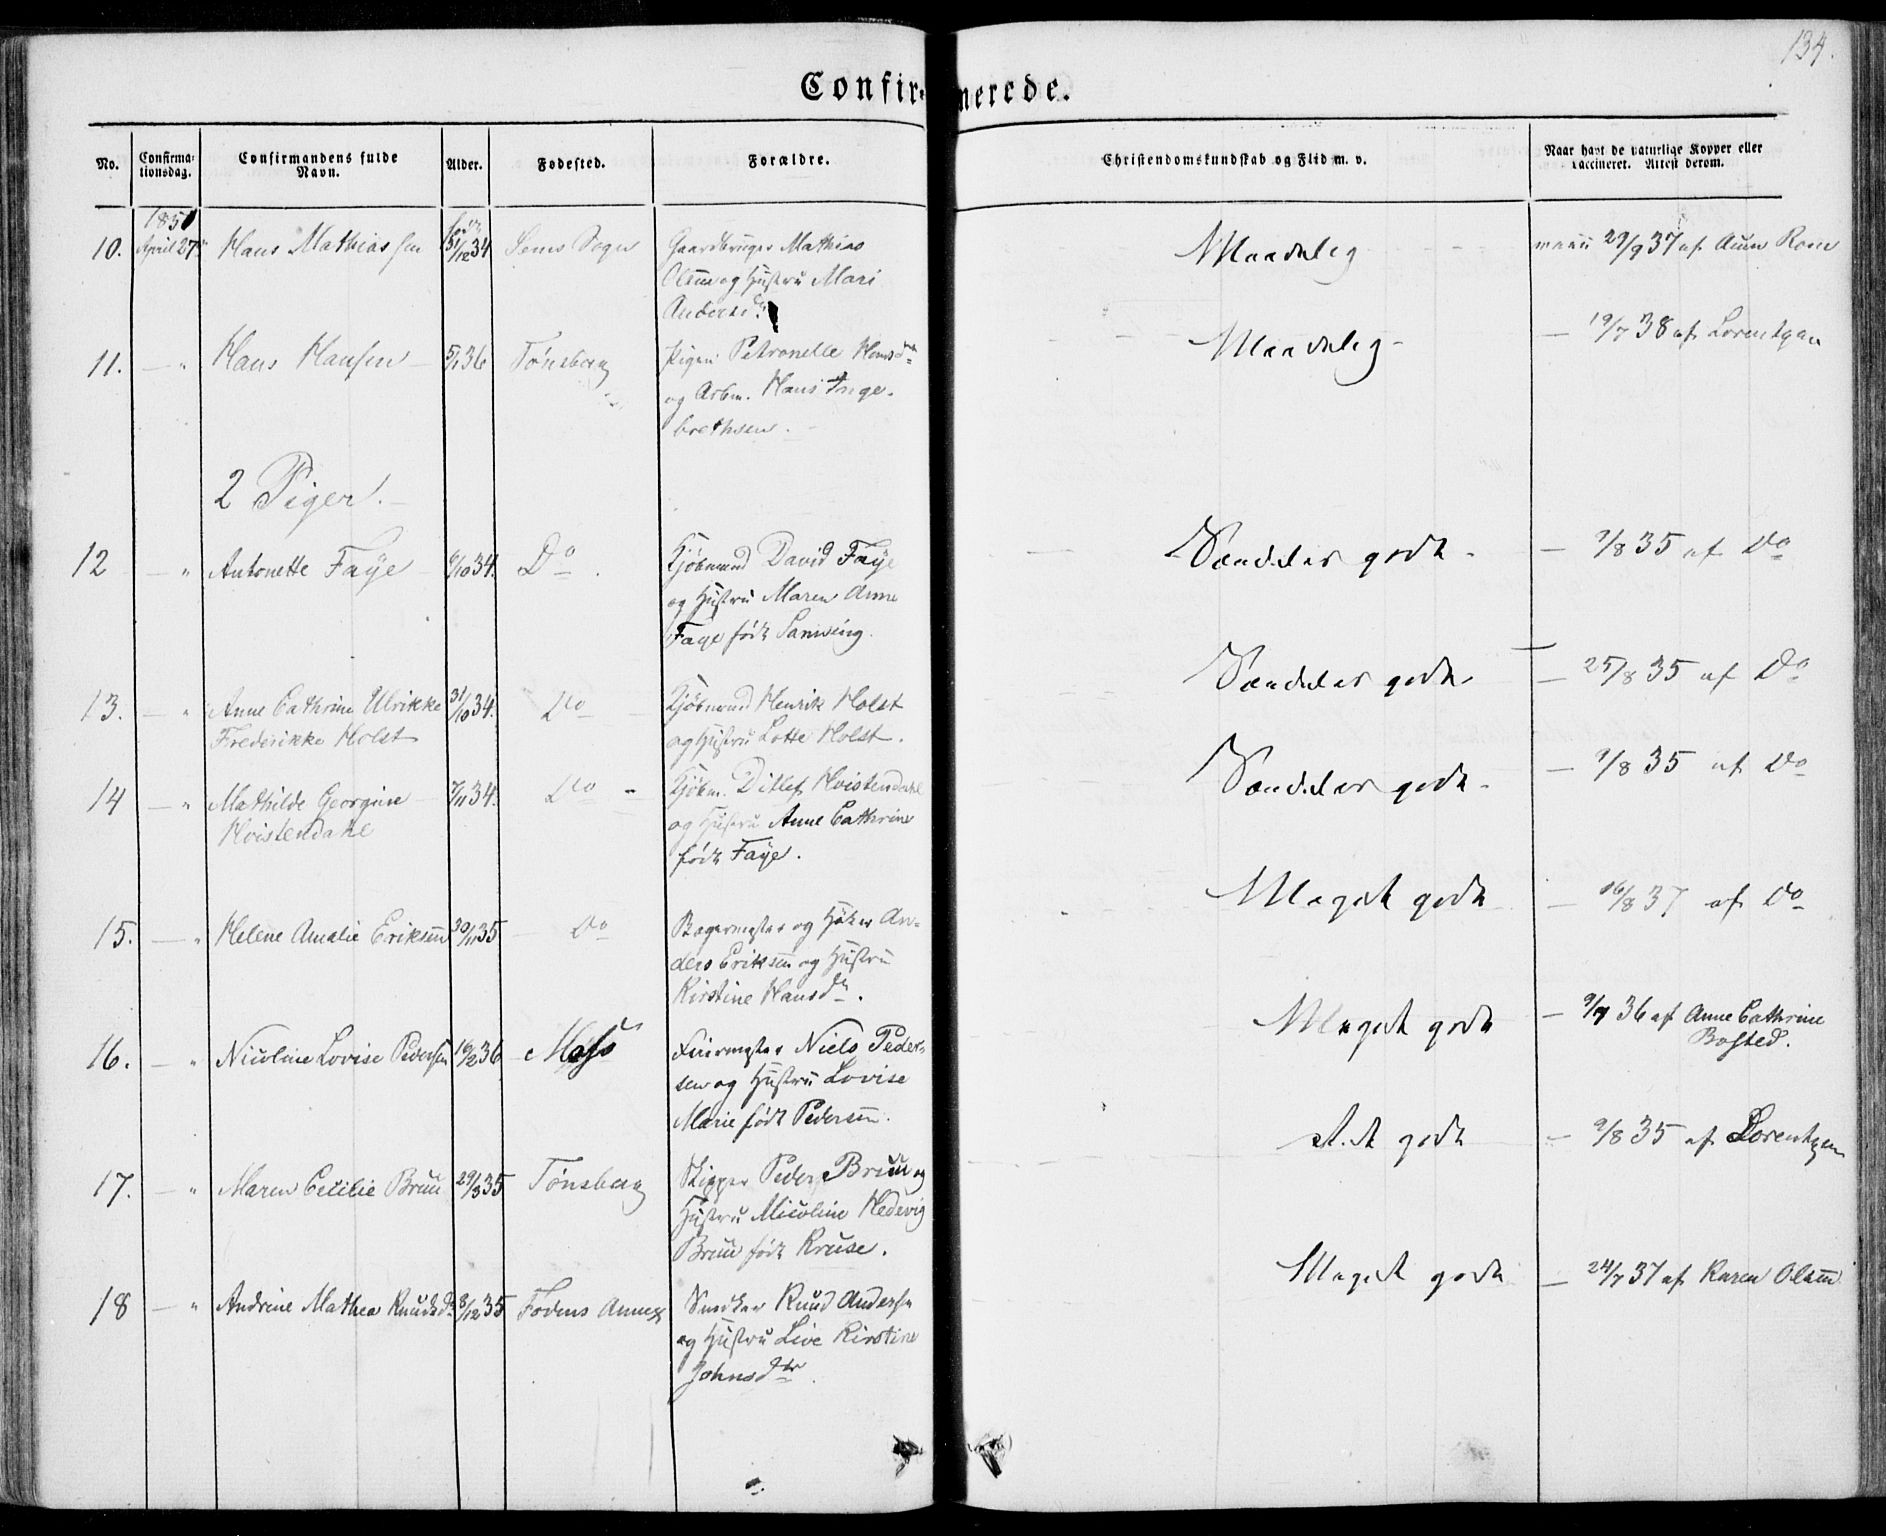 134.
Confirmerede.
No.
Confirma-
tionsdag.
Confirmandens fulde
Navn.
Alder.
Fødested.
Forældre.
Christendomskundskab og Flid m. v.
Naar havt de naturlige Kopper eller
vaccineret. Attest derom.
1851
10. April 27 Hans Mathiassen 31/12 34 Sems Sogn Gaardbruger Mathias
Olsen og Hustru Mari
Andersd.
Maadelig 29/9 37 af
11. — " Hans Hansen 5/1 36 Tønsberg Pigen Petronelle Hansdr
og Arbm. Hans Inge-
brethsen.
Maadelig — 19/7 38 af Lorentzen
2 Piger.
12 — " Antonette Faye 6/10 34. Do Kjøbmand David Faye
og Hustru Maren Anne
Faye født
Særdeles godt — 9/8 35 af Do
13. — " Anne Cathrine Ulrikke 31/10 34. Do Kjøbmand Henrik Holst
Frederikke Holst og Hustru Lotte Holst.
Særdeles godt — 25/8 35 af Do
14 — " Mathilde Georgine 7/11 34. Do Kjøbm. Ditlef Hvistendahl
Hvistendahl og Hustru Anne Cathrine
født Faye.
Særdeles godt — 9/8 35 af Do
15. — " Helene Amalie Eriksen 30/11 35 Do Bagermester og Høker An-
ders Eriksen og Hustru
Kirstine Hansdr.
Meget godt — 16/8 37 af Do
16. — " Nicoline Lovise Pedersen 19/2 36 Moss Feiermester Niels Peder-
sen og Hustru Lovise
Marie født Pedersen.
Meget godt — 9/7 36 af Anne Cathrine
Bosted.
17. — " Maren Cecilie Bruu 29/3 35 Tønsberg Skipper Peder Bruu og
Hustru Nicoline Hedevig
Bruu født Kruse.
godt — 9/8 35 af Lorentzen
18 — " Andrine Mathea Knudsdr 8/12 35 Annex Snedker Knud Andersen
og Hustru Live Kirstine
Johnsdtr.
Meget godt — 24/7 37 af Karen Olsen